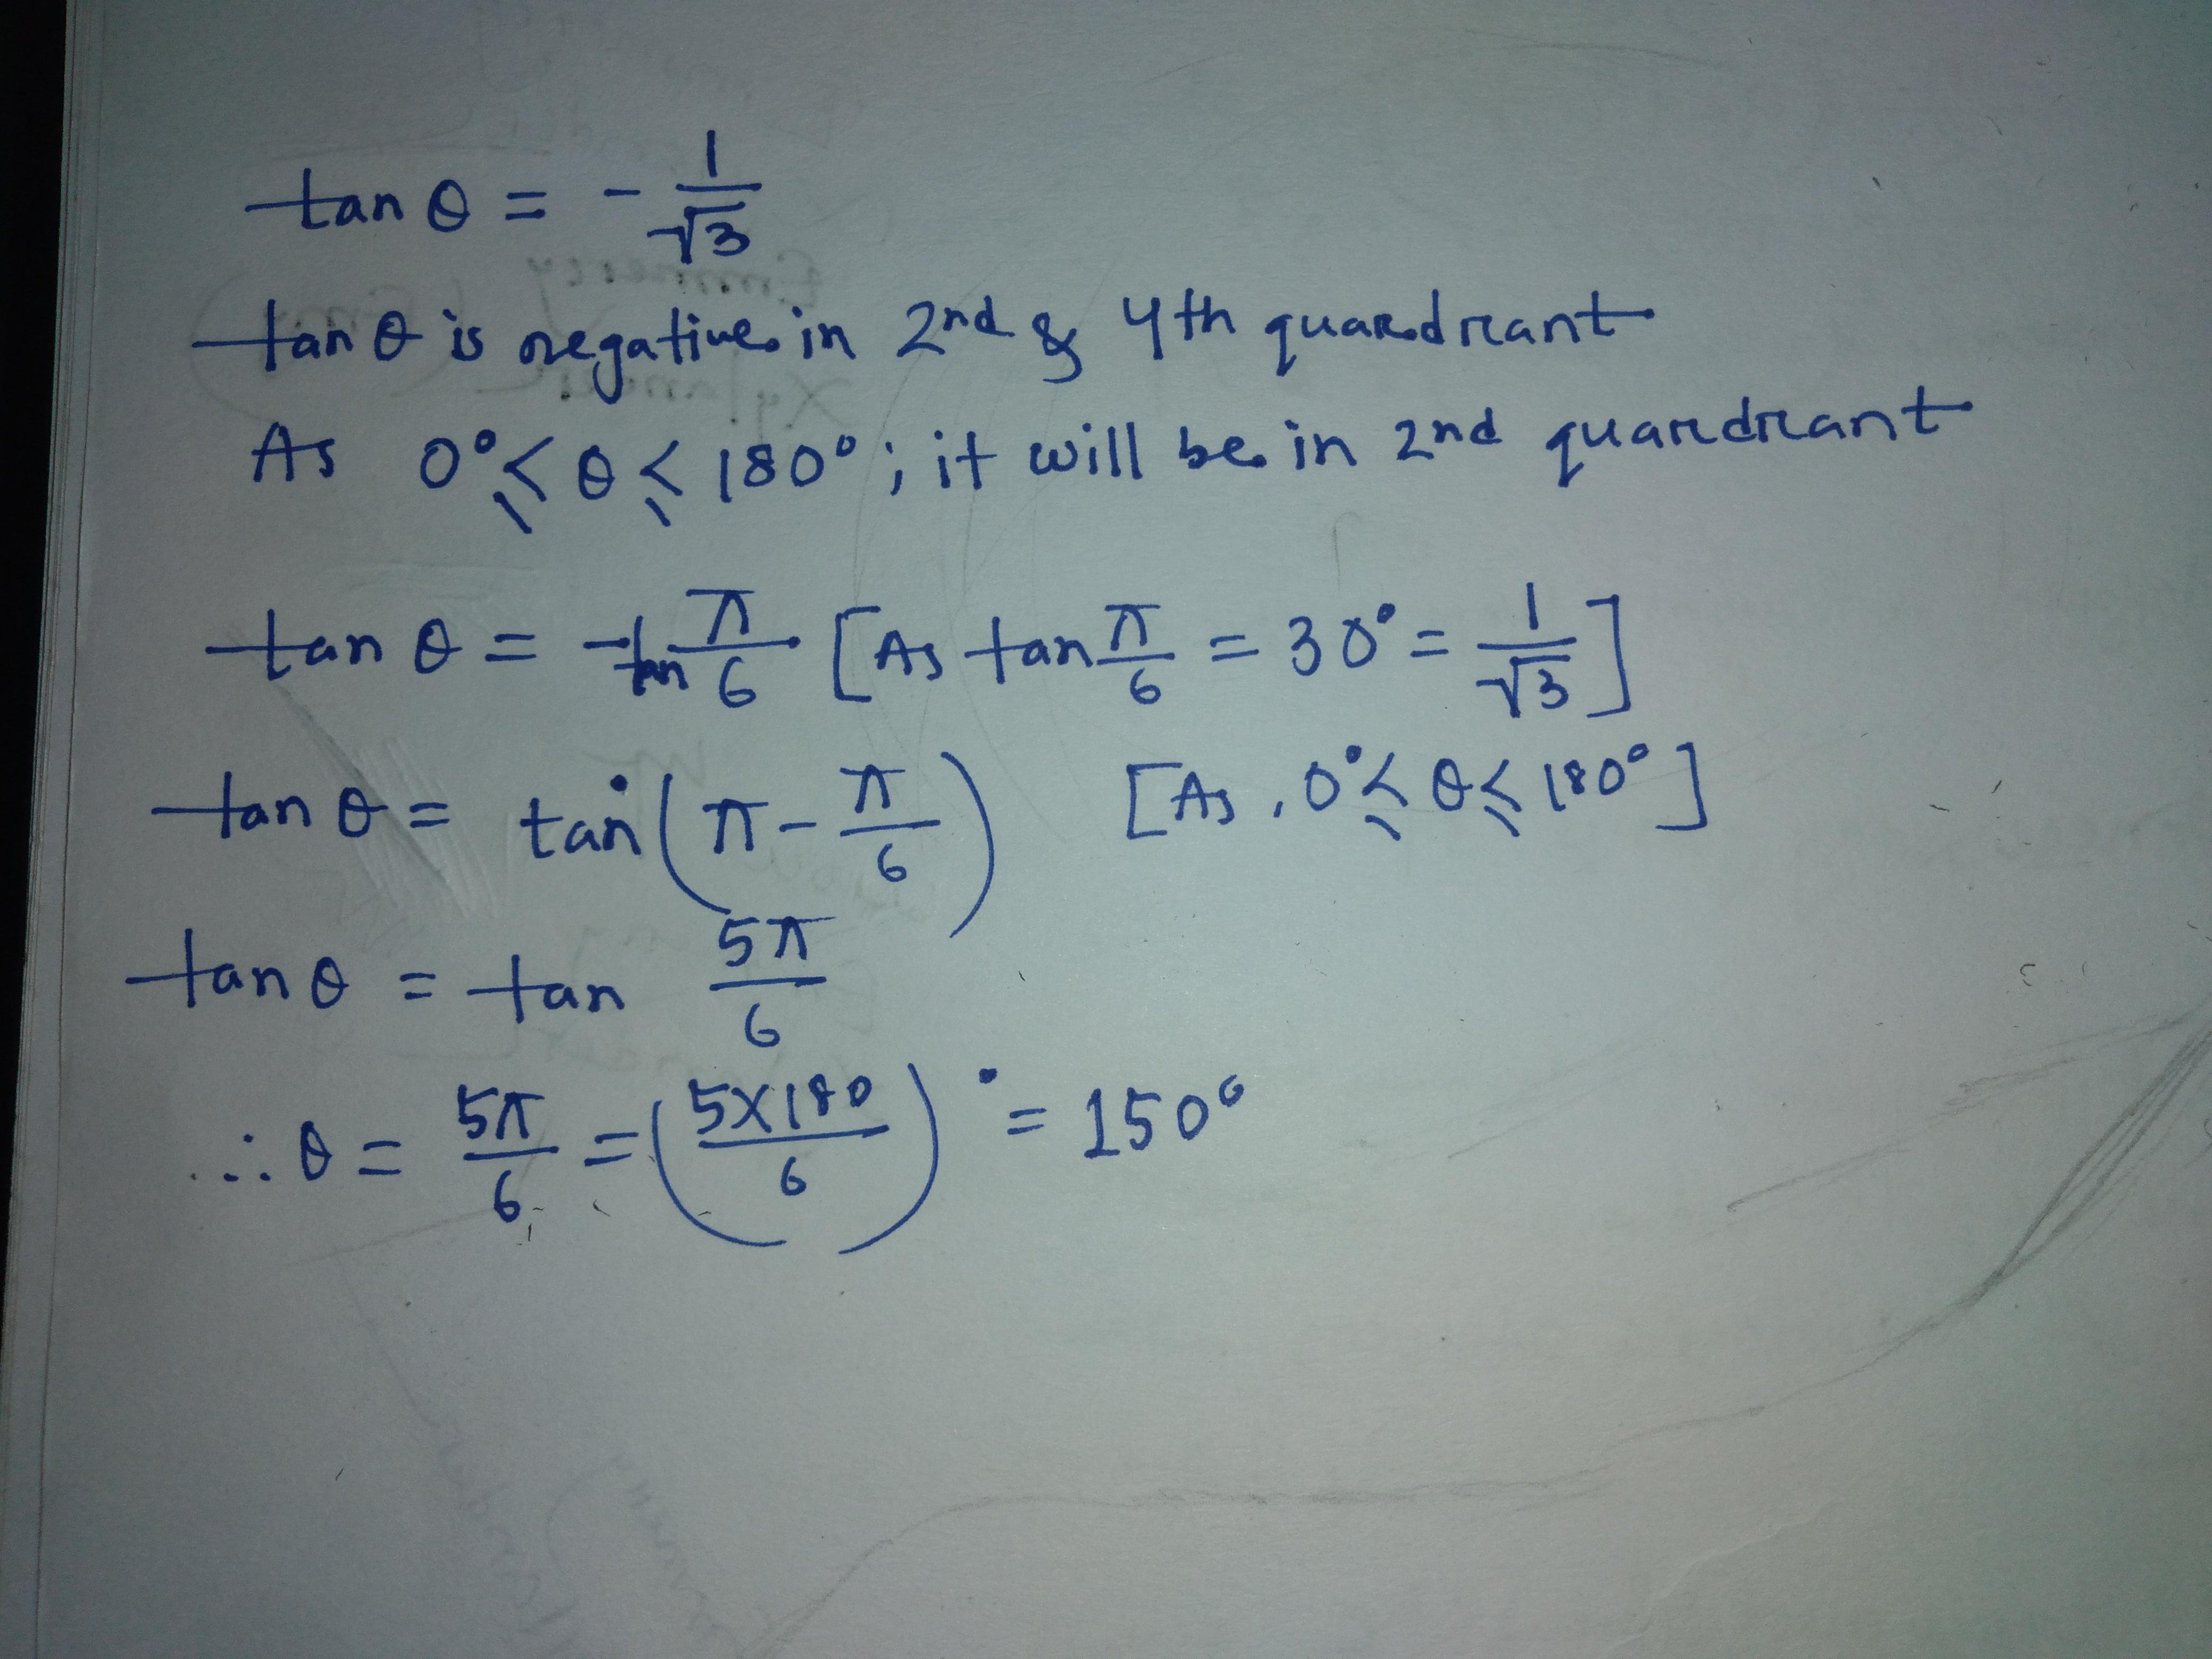 tan θ = - 1/√3
tan θ is negative in 2nd & 4th quardrant
As 0° ≤ θ ≤ 180° ; it will be in 2nd quardrant
tan θ = - tan π/6 [As tan π/6 = 30° = 1/√3]
tan θ = tan (π - π/6) [As, 0° ≤ θ ≤ 180°]
tan θ = tan 5π/6
∴ θ = 5π/6 = (5×180/6)° = 150°